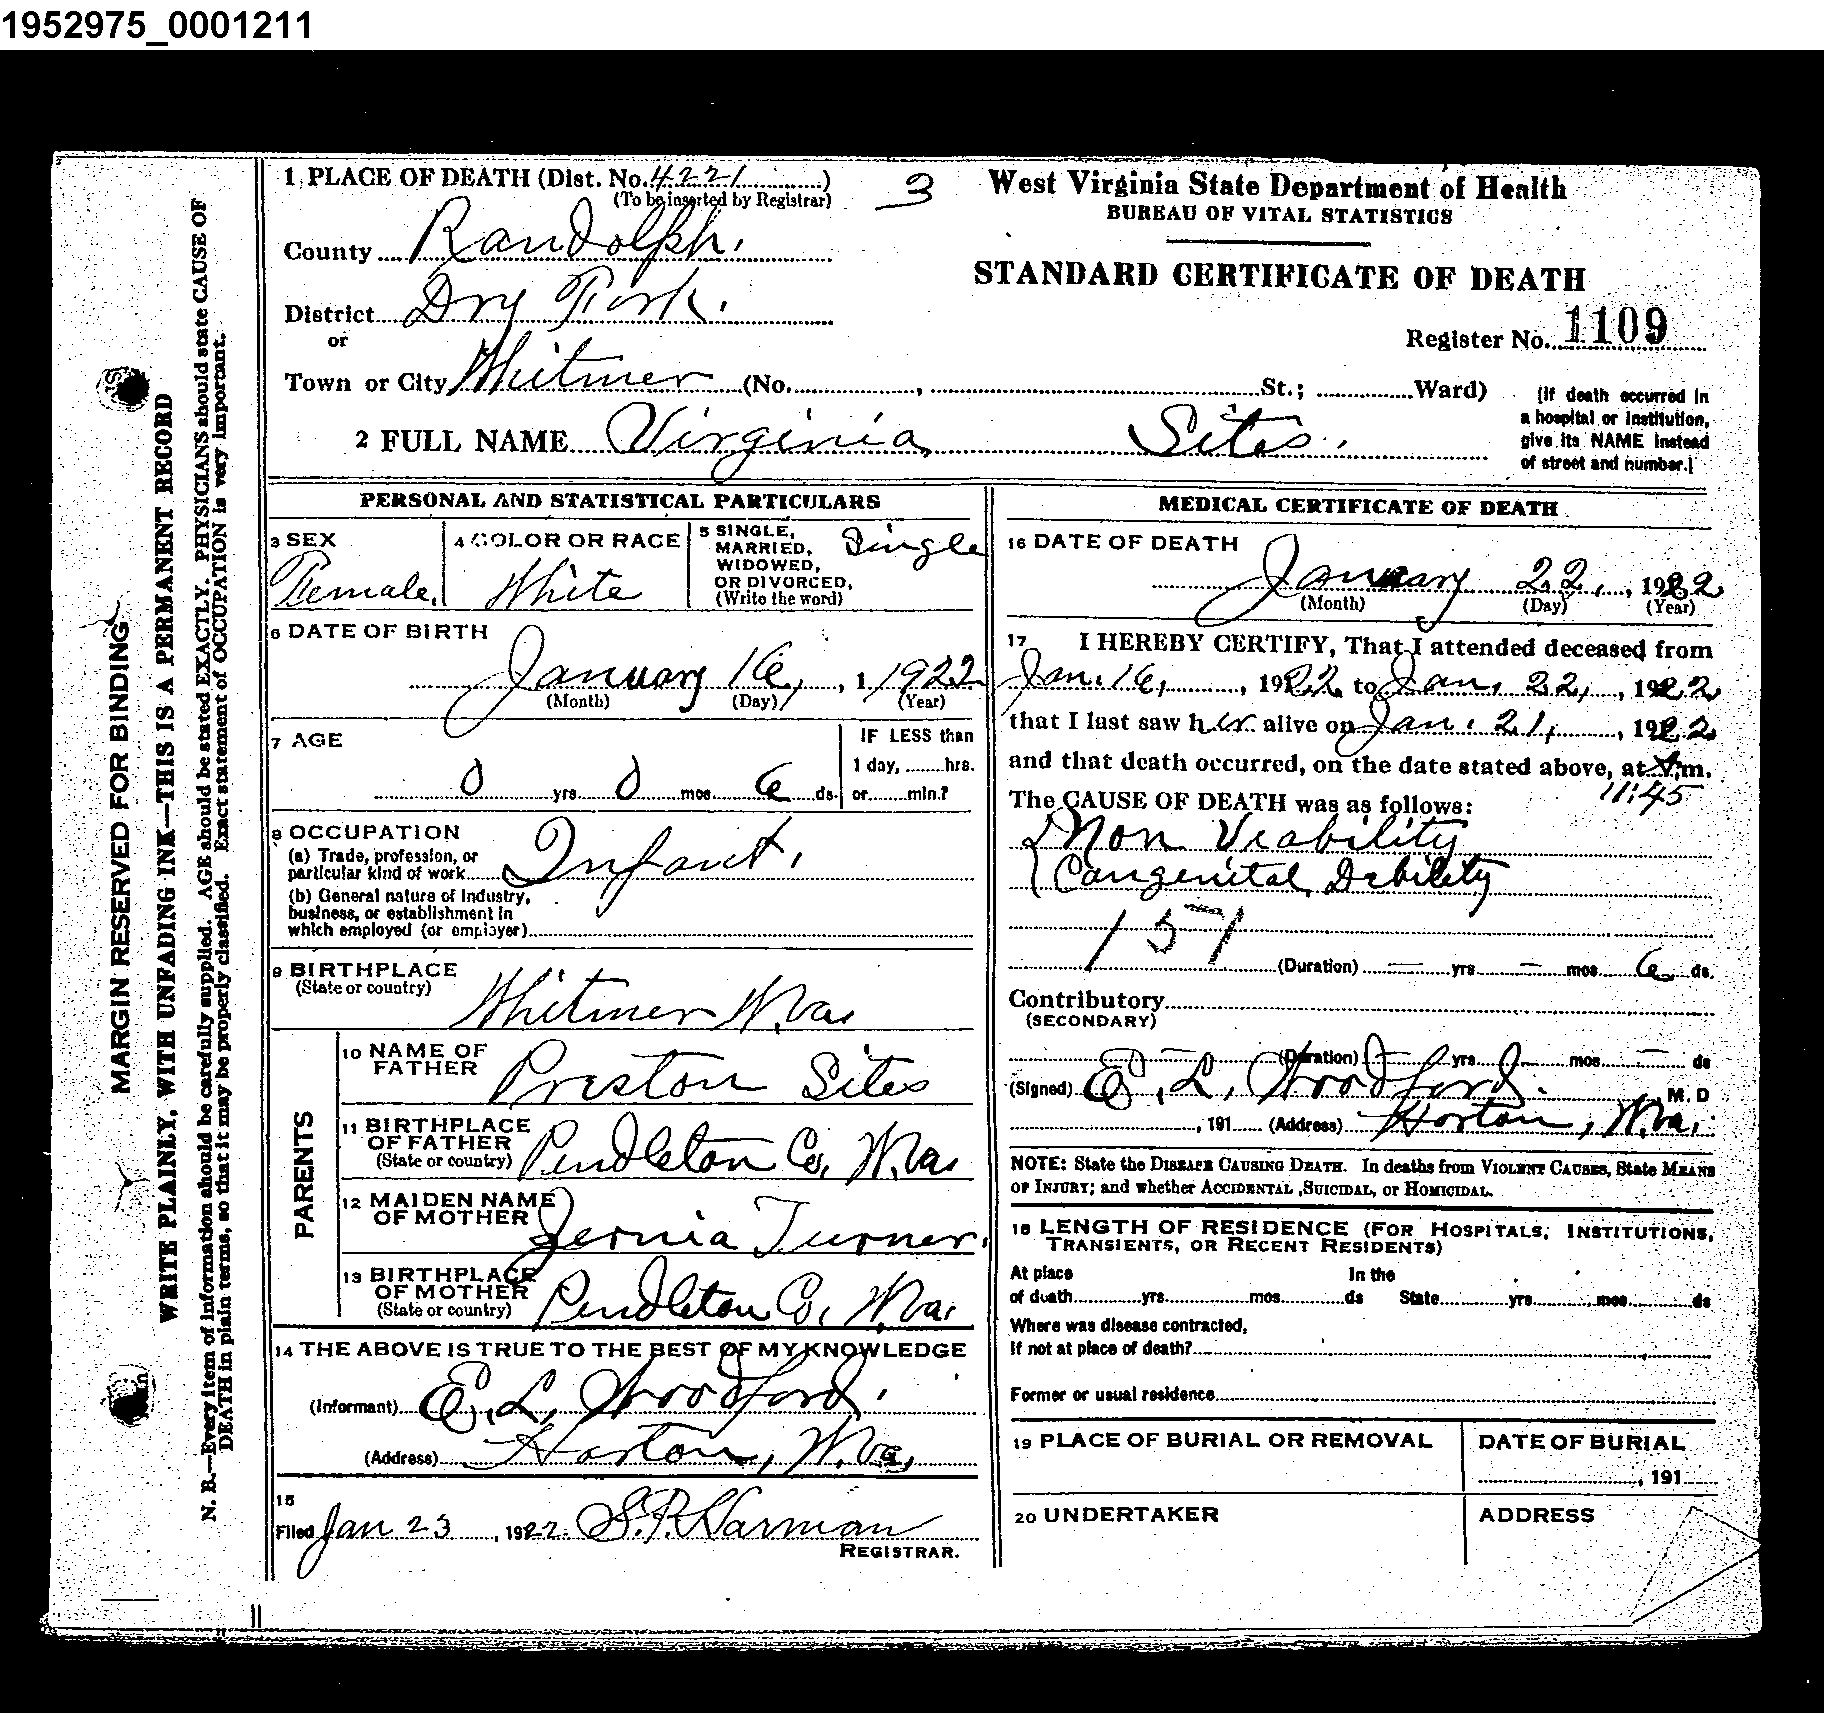 1952975_0001211
1 PLACE OF DEATH (Dist. No. 4221)
(To be inserted by Registrar)
3
West Virginia State Department of Health
BUREAU OF VITAL STATISTICS
STANDARD CERTIFICATE OF DEATH
County Randolph.
District Dry Fork.
or
Register No. 1109
Town or City Whitmer (No. , St.; Ward)
(If death occurred in
a hospital or institution,
give its NAME instead
of street and number.)
2 FULL NAME Virginia Sites.
PERSONAL AND STATISTICAL PARTICULARS
3 SEX
Female.
4 COLOR OR RACE
White
5 SINGLE,
MARRIED,
WIDOWED,
OR DIVORCED,
(Write the word)
Single
6 DATE OF BIRTH
January 16, , 1 1922
(Month) (Day) (Year)
7 AGE
0 yrs. 0 mos. 6 ds.
IF LESS than
1 day, hrs.
or min.?
8 OCCUPATION
(a) Trade, profession, or
particular kind of work Infant.
(b) General nature of Industry,
business, or establishment in
which employed (or employer)
9 BIRTHPLACE
(State or country)
Whitmer W.Va.
PARENTS
10 NAME OF
FATHER
Preston Sites
11 BIRTHPLACE
OF FATHER
(State or country)
Pendleton Co, W.Va.
12 MAIDEN NAME
OF MOTHER
Turner.
13 BIRTHPLACE
OF MOTHER
(State or country)
Pendleton Co, W.Va.
14 THE ABOVE IS TRUE TO THE BEST OF MY KNOWLEDGE
(Informant) E. L. Woodford.
(Address) Horton, W.Va.
15
Filed Jan 23, 1922 S.P. Harman
REGISTRAR.
MEDICAL CERTIFICATE OF DEATH
16 DATE OF DEATH
January 22, , 1922
(Month) (Day) (Year)
17 I HEREBY CERTIFY, That I attended deceased from
Jan. 16, , 1922 to Jan. 22, , 1922
that I last saw her alive on Jan. 21, , 1922
and that death occurred, on the date stated above, at A.m.
11:45
The CAUSE OF DEATH was as follows:
Non Viability
Congenital Debility
157
(Duration) — yrs. — mos. 6 ds.
Contributory
(SECONDARY)
(Duration) — yrs. — mos. — ds
(Signed) E. L. Woodford. M. D
, 191 (Address) Horton, W.Va.
NOTE: State the DISEASE CAUSING DEATH. In deaths from VIOLENT CAUSES, State MEANS
OF INJURY; and whether ACCIDENTAL ,SUICIDAL, or HOMICIDAL.
18 LENGTH OF RESIDENCE (FOR HOSPITALS, INSTITUTIONS,
TRANSIENTS, OR RECENT RESIDENTS)
At place In the
of death yrs. mos. ds State yrs. mos. ds
Where was disease contracted,
If not at place of death?
Former or usual residence
19 PLACE OF BURIAL OR REMOVAL
DATE OF BURIAL
, 191
20 UNDERTAKER
ADDRESS
MARGIN RESERVED FOR BINDING
WRITE PLAINLY, WITH UNFADING INK—THIS IS A PERMANENT RECORD
N. B.—Every item of information should be carefully supplied. AGE should be stated EXACTLY. PHYSICIANS should state CAUSE OF
DEATH in plain terms, so that it may be properly classified. Exact statement of OCCUPATION is very important.